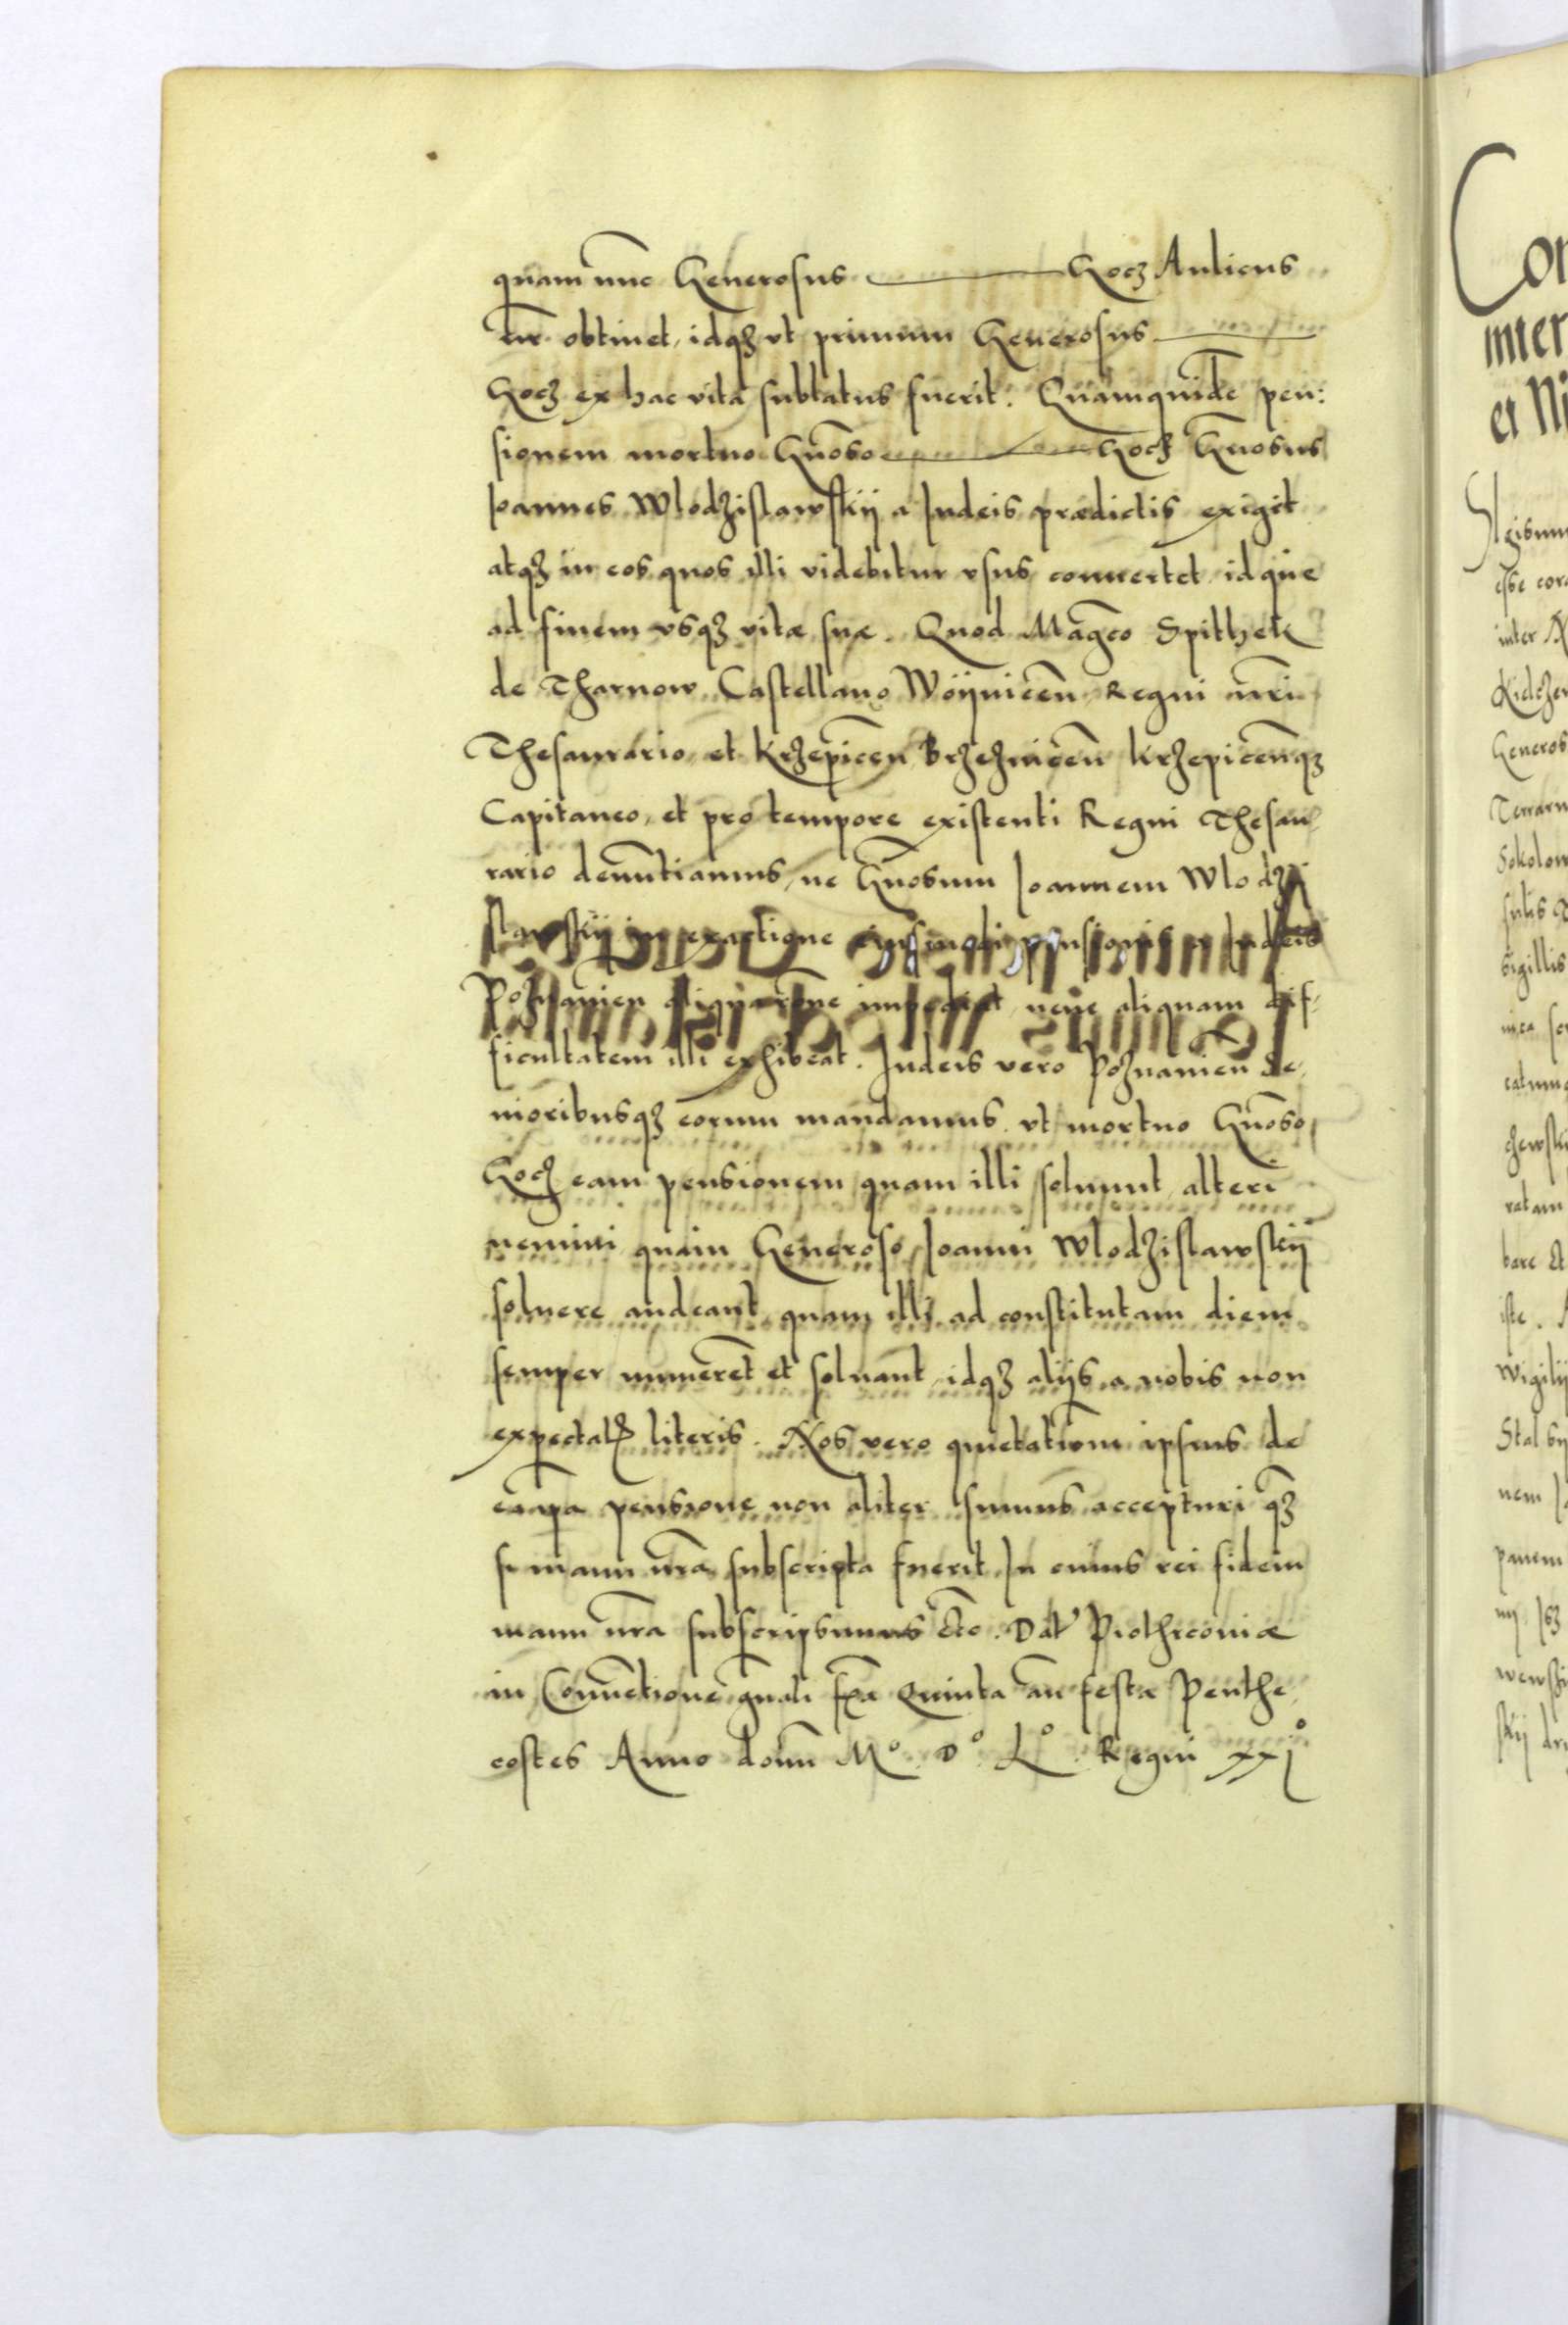 quam nunc Generosus ——— Gocz Aulicus
nr̄ obtinet, idqȝ vt primum Generosus ———
Gocz ex hac vita sublatus fuerit. Quamquidē pen:
sionem mortuo Gnōso ——— Gocz Gnōsus
Ioannes Wlodzislawskij a Iudeis prædictis exiget
atqȝ in eos quos illi videbitur vsus conuertet idque
ad finem vsqȝ vitæ suæ. Quod Magco Spithek
de Tharnow Castellano Woÿnicen̄ Regni nr̄i
Thesaurario et Krzepicen̄ Brzeznicen̄ Krzepicen̄qȝ
Capitaneo, et pro tempore existenti Regni Thesau-
rario denun̄tiamus, ne Gnōsum Ioannem Wlodzi
slawskij in exactione eiusmodi pensionis a Iudeis
Poznanien̄ impediat, neue aliquam dif-
ficultatem illi exhibeat. Iudeis vero Poznanien̄ Se-
nioribusqȝ eorum mandamus vt mortuo Gnōso
Gocz eam pensionem quam illi soluunt alteri
nemini quam Generoso Ioanni Wlodzislawskij
soluere audeant quam illi ad constitutam diem
semper numeren̄t et soluant, idqȝ alijs a nobis non
expectatis literis. Nos vero quietation̄em ipsius de
ea ip̄a pensione non aliter sumus accepturi qȝ
si manu nr̄a subscripta fuerit. In cuius rei fidem
manu nr̄a subscripsimus etc. Dat̄ Piothrcouiæ
in Conuen̄tione gn̄ali fr̄a Quinta an̄ festa Penthe
costes Anno domn̄ M° D° L° Regni xxj°
Con
inter
et Ni
Sigismun
esse cor
inter N
Generos
Terrarum
Sokolow
sulis
Sigillis
catumq
ratam
bare Et
iste.
wigilij
nem
panem